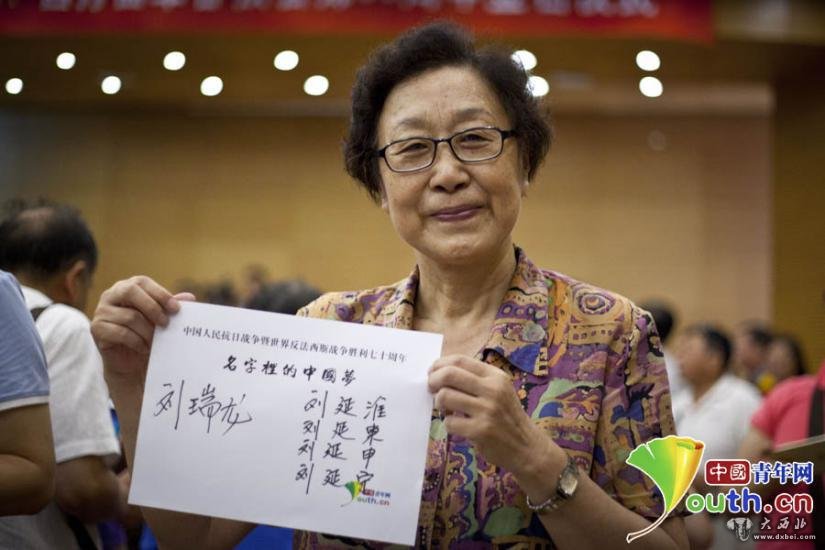 中国人民抗日战争暨世界反法西斯战争胜利七十周年
名字裡的中國夢
刘瑞龙
刘延淮
刘延東
刘延申
刘延宁
中国青年网
Youth.cn
中國青年网
Youth.cn
大西北
www.dxbei.com